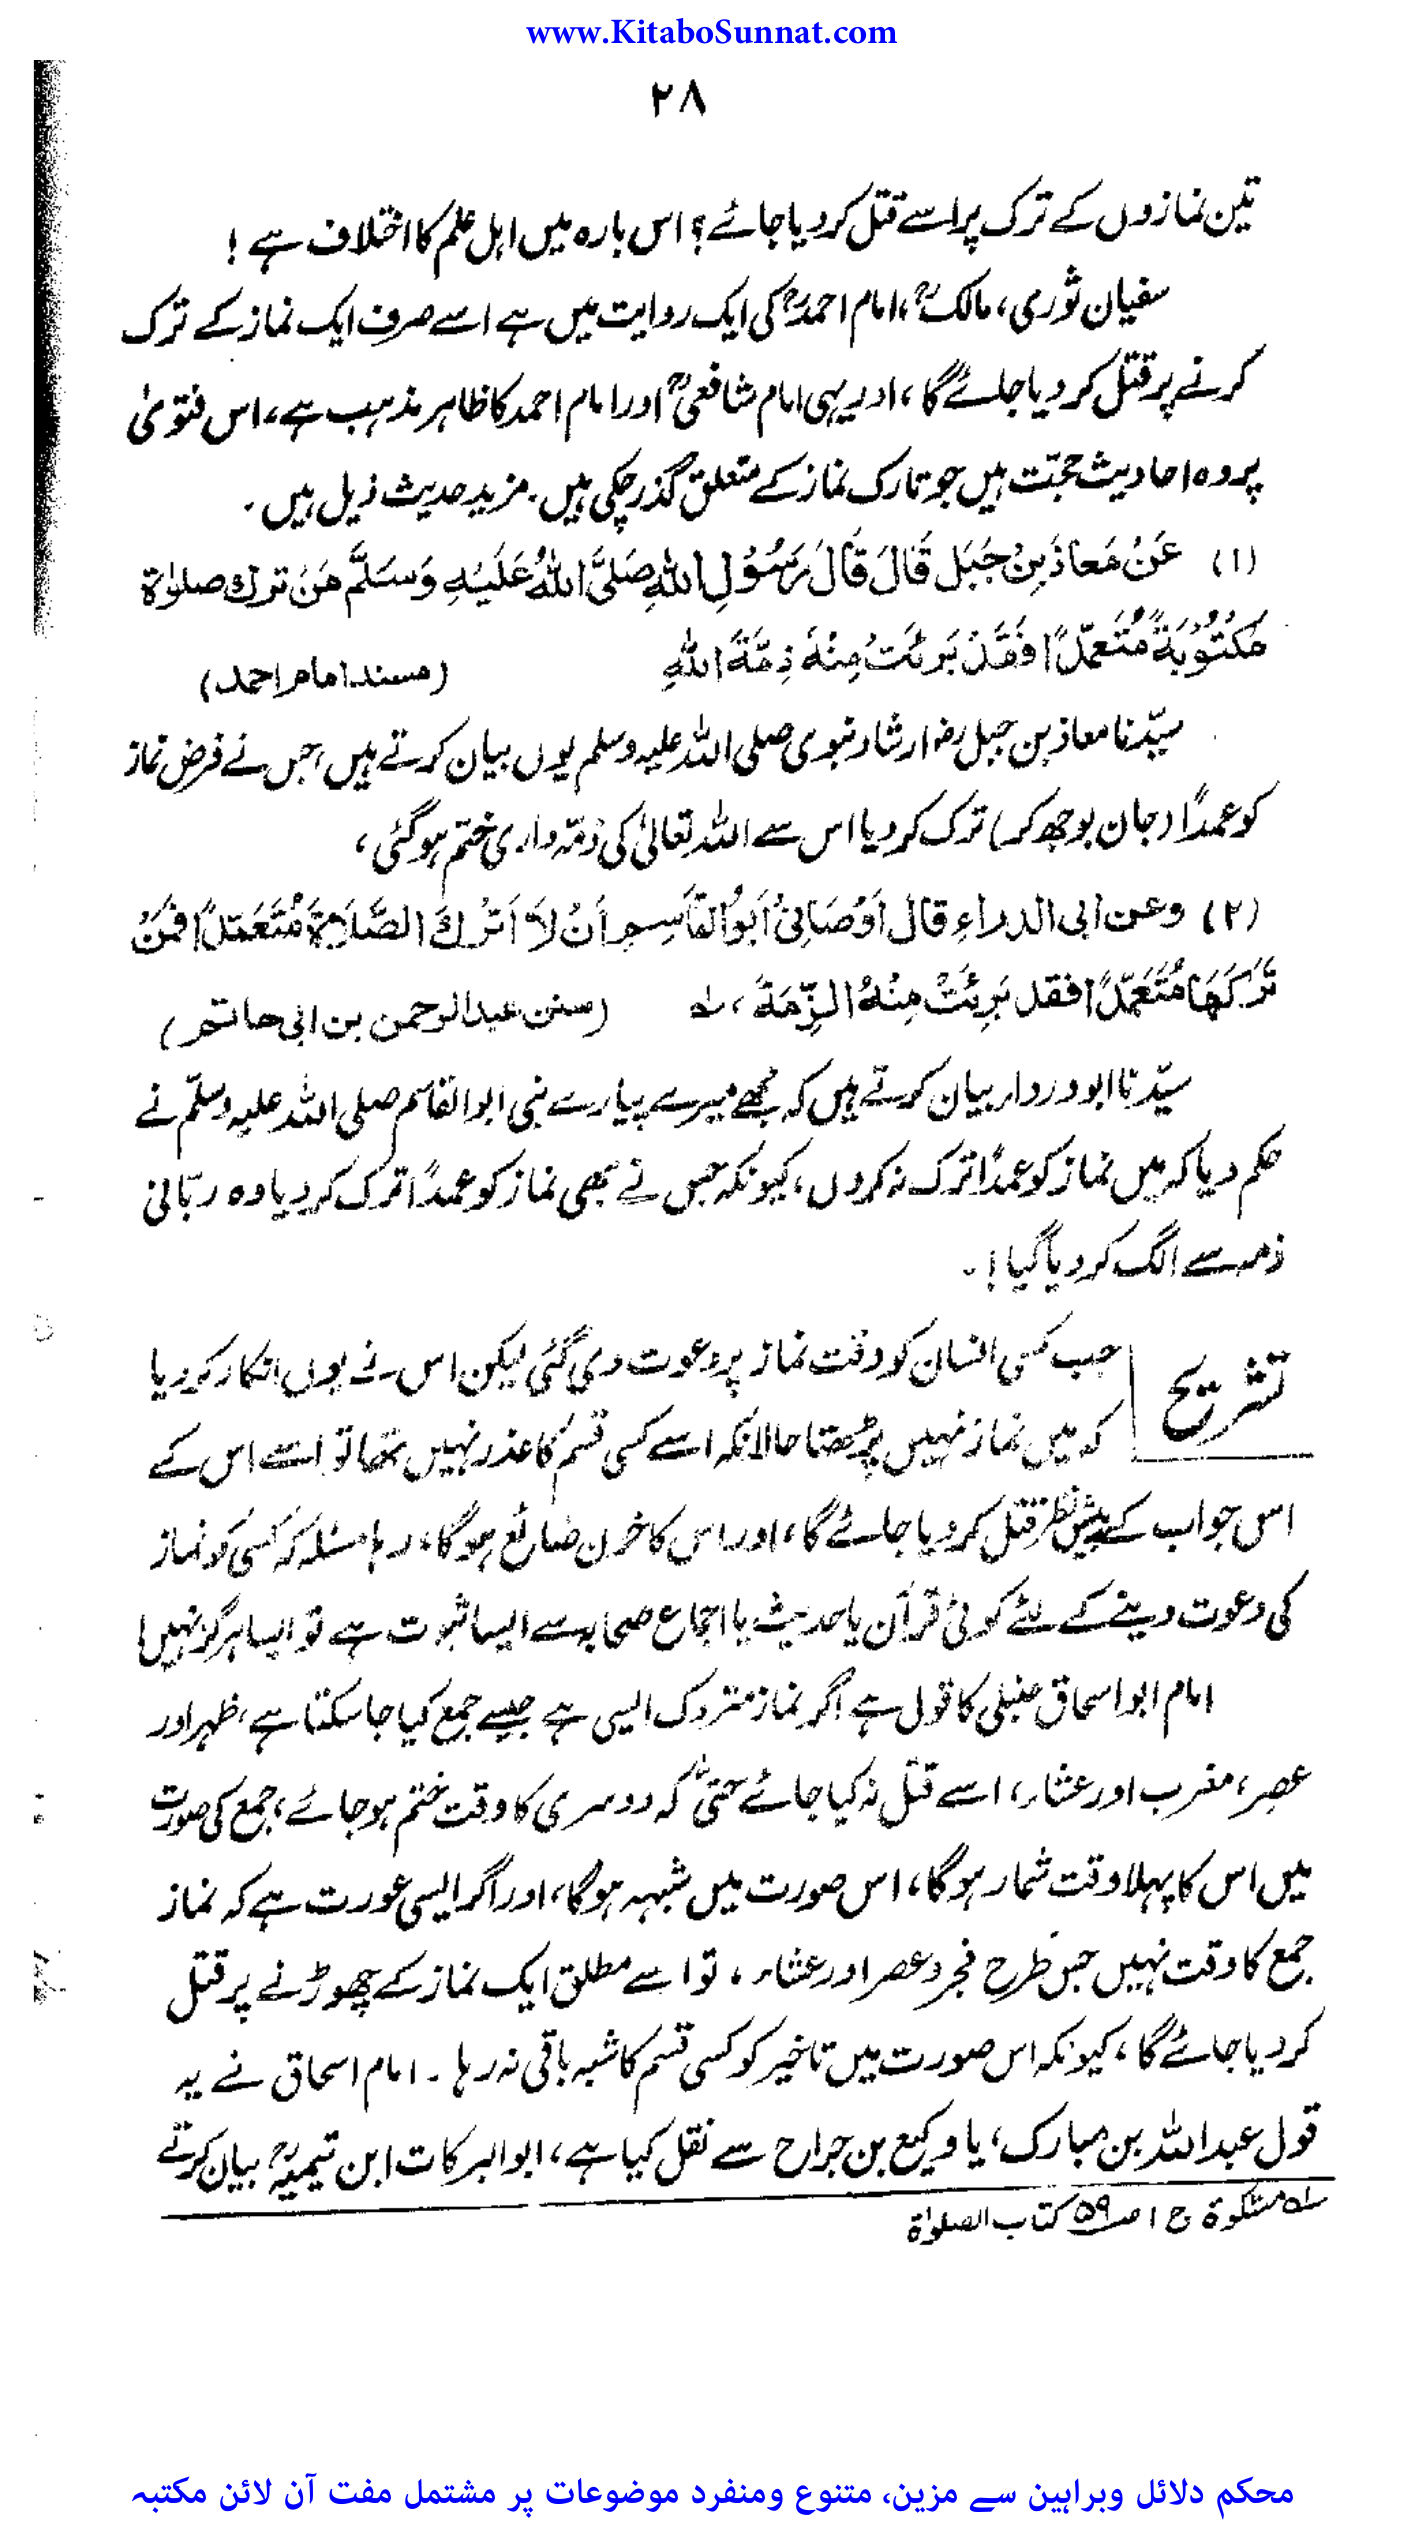 www.KitaboSunnat.com
۲۸
تین نمازوں کے ترک پر اسے قتل کر دیا جائے؟ اس بارہ میں اہل علم کا اختلاف ہے !
سفیان ثوری، مالکؒ، امام احمدؒ کی ایک روایت میں ہے اسے صرف ایک نماز کے ترک
کرنے پر قتل کر دیا جائے گا، اور یہی امام شافعیؒ اور امام احمد کا ظاہر مذہب ہے، اس فتویٰ
پر وہ احادیث حجّت ہیں جو تارک نماز کے متعلق گذر چکی ہیں. مزید حدیث ذیل ہیں.
(۱) عَنْ مَعاذَ بِنْ جَبَل قَالَ قَالَ رَسُوْلِ اللهِ صَلَّی اللهُ عَلَيْهِ وَسَلَّم مَنْ ترك صلوٰة
مَكْتُوْبَةً مُتَعمّدًا فَقَدْ بَرِئَتْ مِنْهُ ذِمَّةَ اللهِ (مسند امام احمد)
سیّدنا معاذ بن جبلؓ ارشاد نبوی صلی اللہ علیہ وسلم یوں بیان کرتے ہیں، جس نے فرض نماز
کو عمداً (جان بوجھ کر) ترک کر دیا اس سے اللہ تعالیٰ کی ذمّہ داری ختم ہو گئی،
(۲) وعن ابی الدراءِ قال اَوْصَانِیْ اَبُو القَاسِم اَنْ لَا اَتْرُكَ الصَّلَاةَ مُتَعَمّدًا فَمَنْ
تَرَكَهَا مُتَعَمّدًا فقد بَرِئَتْ مِنْهُ الزِّمَةَ، لہ (سنن عبدالرحمن بن ابی حاتم)
سیّدنا ابو درداء بیان کرتے ہیں کہ مجھے میرے پیارے نبی ابوالقاسم صلی اللہ علیہ وسلّم نے
حکم دیا کہ میں نماز کو عمداً ترک نہ کروں، کیونکہ جس نے بھی نماز کو عمداً ترک کر دیا وہ ربّانی
ذمہ سے الگ کر دیا گیا!۔
تشریح جب کسی انسان کو وقت نماز پر دعوت دی گئی لیکن اس نے یوں انکار کر دیا
کہ میں نماز نہیں پڑھتا حالانکہ اسے کسی قسم کا عذر نہیں تھا تو اسے اس کے
اس جواب کے پیش نظر قتل کر دیا جائے گا، اور اس کا خون ضائع ہو گا، رہا مسئلہ کہ کسی کو نماز
کی دعوت دینے کے لئے کوئی قرآن یا حدیث یا اجماع صحابہ سے ایسا ثبوت ہے تو ایسا ہر گز نہیں!
امام ابو اسحاق حنبلی کا قول ہے اگر نماز متروک ایسی ہے جسے جمع کیا جا سکتا ہے، ظہر اور
عصر، مغرب اور عشاء، اسے قتل نہ کیا جائے حتیٰ کہ دوسری کا وقت ختم ہو جائے، جمع کی صورت
میں اس کا پہلا وقت شمار ہو گا، اس صورت میں شبہہ ہو گا، اور اگر ایسی عورت ہے کہ نماز
جمع کا وقت نہیں جس طرح فجر و عصر اور عشاء، تو اسے مطلق ایک نماز کے چھوڑنے پر قتل
کر دیا جائے گا، کیونکہ اس صورت میں تاخیر کو کسی قسم کا شبہ باقی نہ رہا۔ امام اسحاق نے یہ
قول عبداللہ بن مبارک، یا وکیع بن جراح سے نقل کیا ہے، ابوالبرکات ابن تیمیہؒ بیان کرتے
لہ مشکوة ج ۱ صـ ۵۹ کتاب الصلوٰة
محکم دلائل وبراہین سے مزین، متنوع ومنفرد موضوعات پر مشتمل مفت آن لائن مکتبہ